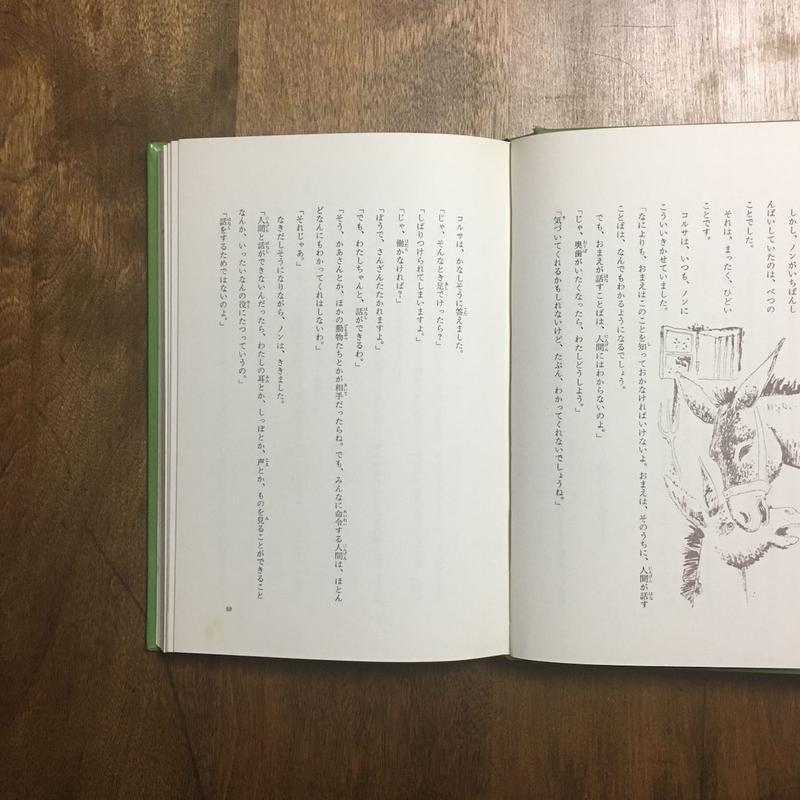 しかし、ノンがいちばんし
んぱいしていたのは、べつの
ことでした。
それは、まったく、ひどい
ことです。
コルサは、いつも、ノンに
こういいきかせていました。
「なによりも、おまえはこのことを知っておかなければいけないよ。おまえは、そのうちに、人間が話す
ことばは、なんでもわかるようになるでしょう。
でも、おまえが話すことばは、人間にはわからないのよ。」
「じゃ、奥歯がいたくなったら、わたしどうしよう。」
「気づいてくれるかもしれないけど、たぶん、わかってくれないでしょうね。」
コルサは、かなしそうに答えました。
「じゃ、そんなとき足でけったら?」
「しばりつけられてしまいますよ。」
「じゃ、働かなければ?」
「ぼうで、さんざんたたかれますよ。」
「でも、わたしちゃんと、話ができるわ。」
「そう、かあさんとか、ほかの動物たちとかが相手だったらね。でも、みんなに命令する人間は、ほとん
どなんにもわかってくれはしないわ。」
「それじゃあ。」
なきだしそうになりながら、ノンは、ききました。
「人間と話ができないんだったら、わたしの耳とか、しっぽとか、声とか、ものを見ることができること
なんか、いったいなんの役にたつっていうの。」
「話をするためではないのよ。」
59